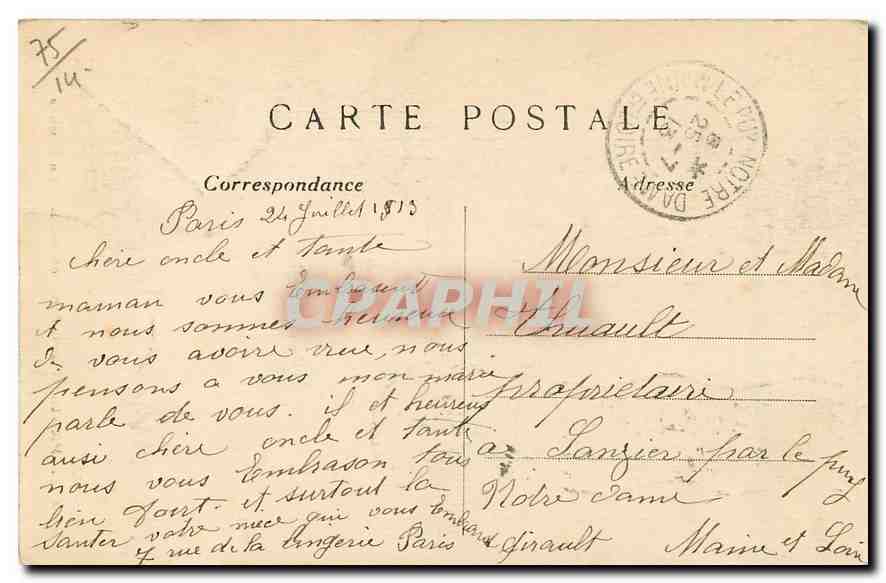 75/14
CARTE POSTALE
LE PUY NOTRE DAME
25 - 7
13
Correspondance
Adresse
Paris 24 Juillet 1913
chère oncle et tante
maman vous Embrasent
et nous sommes heureuse
de vous avoire vrue, nous
pensons a vous mon marie
parle de vous. il et heureus
ausi chère oncle et tante
nous vous Embrason tous
bien fort. et surtout la
santer votre niece qui vous Embrasse
7 rue de la lingerie Paris Girault
Monsieur et Madame
propriétaire
a Sanzier par le puy
Notre dame
Maine et Loire
CPAPHIL